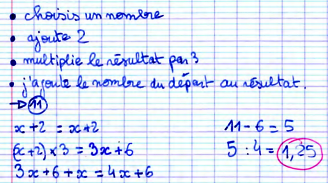 • choisis un nombre
• ajoute 2
• multiplie le résultat par 3
• j'ajoute le nombre du départ au résultat.
→ 11
x + 2 = x + 2
(x+2) × 3 = 3x + 6
3x + 6 + x = 4x + 6
11 - 6 = 5
5 : 4 = 1,25